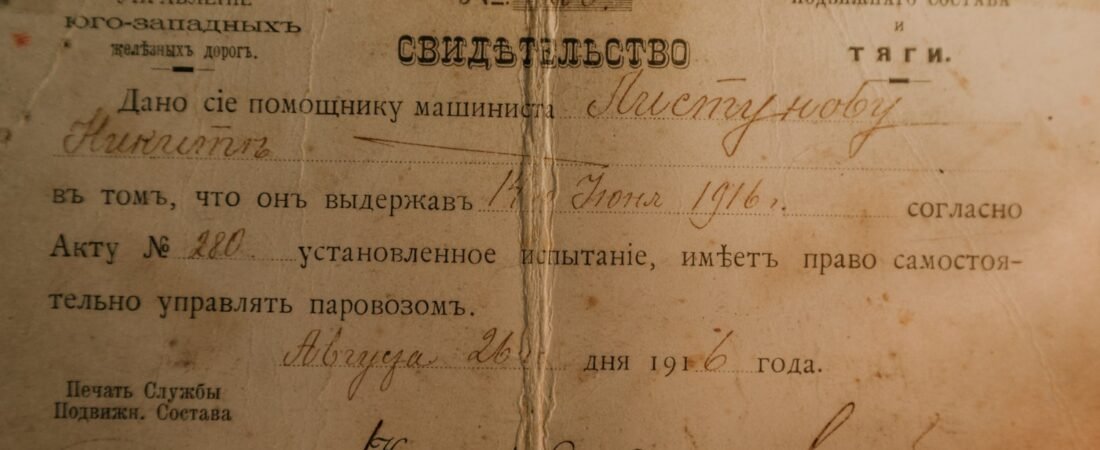 УПРАВЛЕНІЕ
ЮГО-ЗАПАДНЫХЪ
желѣзныхъ дорогъ.
№
ПОДВИЖНАГО СОСТАВА
и
ТЯГИ.
СВИДѢТЕЛЬСТВО
Дано сіе помощнику машиниста Пистунову
Никитѣ
въ томъ, что онъ выдержав 14го Іюня 1916 г. согласно
Акту № 280 установленное испытаніе, имѣетъ право самостоя-
тельно управлять паровозомъ.
Августа 26 дня 1916 года.
Печать Службы
Подвижн. Состава